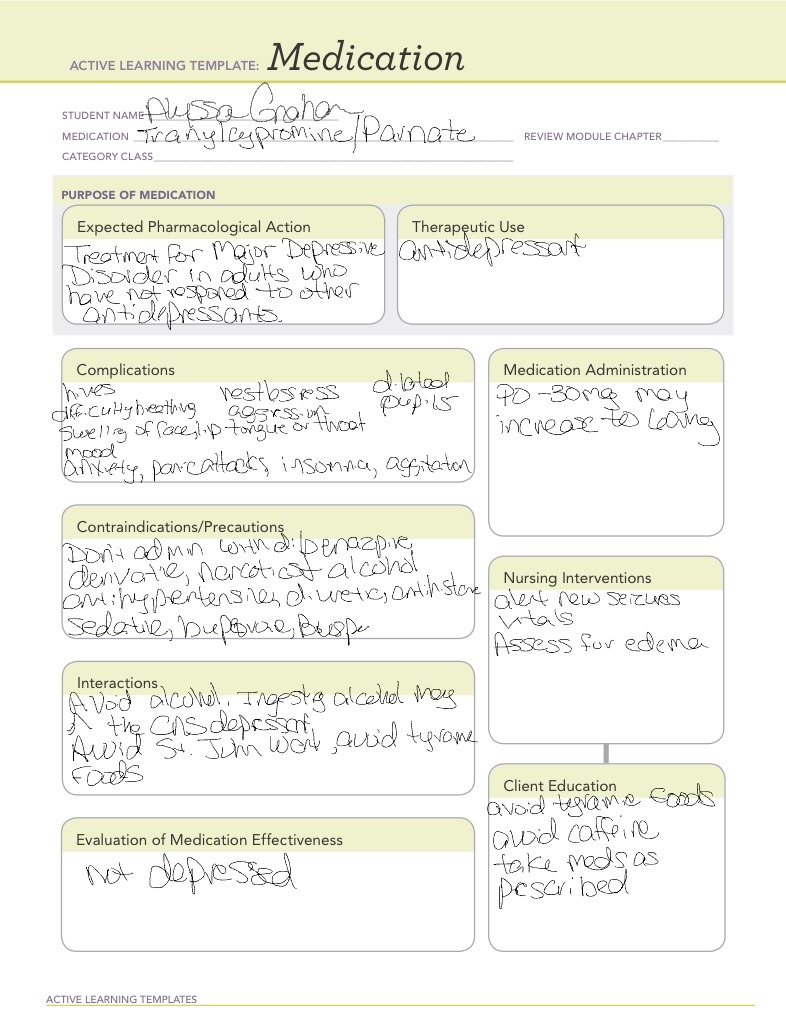 ACTIVE LEARNING TEMPLATE: Medication
STUDENT NAME Alyssa Graham
MEDICATION Tranylcypromine/Parnate REVIEW MODULE CHAPTER
CATEGORY CLASS
PURPOSE OF MEDICATION
Expected Pharmacological Action
Treatment for Major Depressive
Disorder in adults who
have not respond to other
antidepressants.
Therapeutic Use
antidepressant
Complications
hives restlessness dilated
difficulty breathing aggression pupils
swelling of face, lip tongue or throat
mood
anxiety, panic attacks, insomnia, aggitation
Medication Administration
PO - 30mg may
increase to 60mg
Contraindications/Precautions
Don't admin with
derivative, narcotics alcohol
antihypertensive, diuretic, antihistamine
Sedative,
Nursing Interventions
alert new seizures
vitals
Assess for edema
Interactions
Avoid alcohol. Ingesting alcohol may
↑ the CNS depressant.
Avoid St. John Wort, avoid tyramine
Foods
Client Education
avoid tyramine foods
avoid caffeine
take meds as
pescribed
Evaluation of Medication Effectiveness
not depressed
ACTIVE LEARNING TEMPLATES